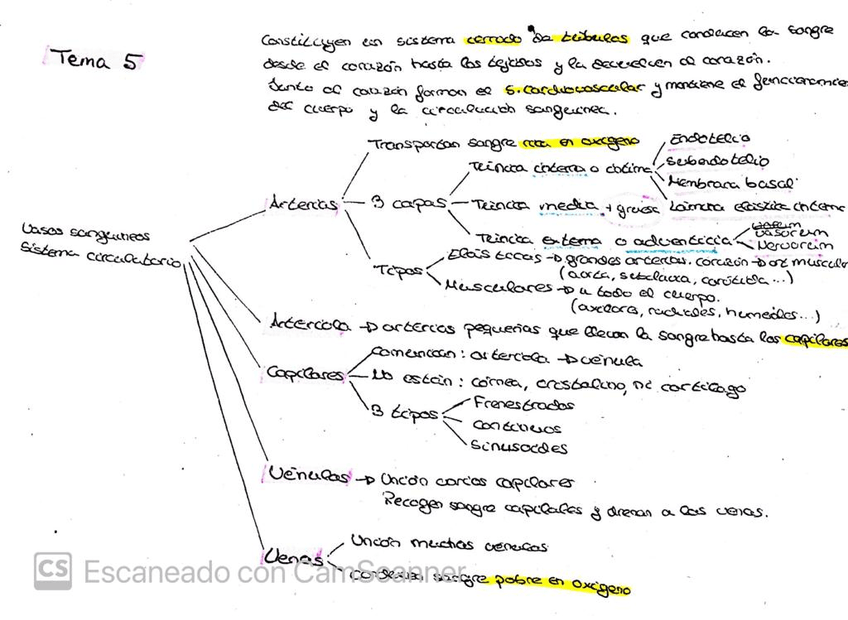 Tema 5
Constituyen un sistema cerrado de túbulos que conducen la sangre
desde el corazón hasta los tejidos y la devuelven al corazón.
Junto al corazón forman el s. cardiovascular y mantiene el funcionamie
del cuerpo y la circulación sanguínea.
Vasos sanguíneos
Sistema circulatorio
Arterias
Transportan sangre rica en oxígeno
3 capas
Túnica interna o íntima
Endotelio
Subendotelio
Membrana basal
Lámina elástica interna
Túnica media + gruesa
Túnica externa o adventicia
Vasorum
Nervorum
Tipos
Elásticas → grandes arterias. corazón → art muscula
(aorta, subclavia, carótida...)
Musculares → a todo el cuerpo.
(axilares, radiales, humerales...)
Arteriola → arterias pequeñas que llevan la sangre hasta los capilares
Capilares
Comunican: arteriola → vénula
No están: córnea, cristalino, ni cartílago
3 tipos
Frenestrados
Continuos
Sinusoides
Vénulas → Unión varios capilares
Recogen sangre capilares y drenan a las venas.
Venas
Unión muchas vénulas
conducen sangre pobre en oxígeno
CS Escaneado con CamScanner